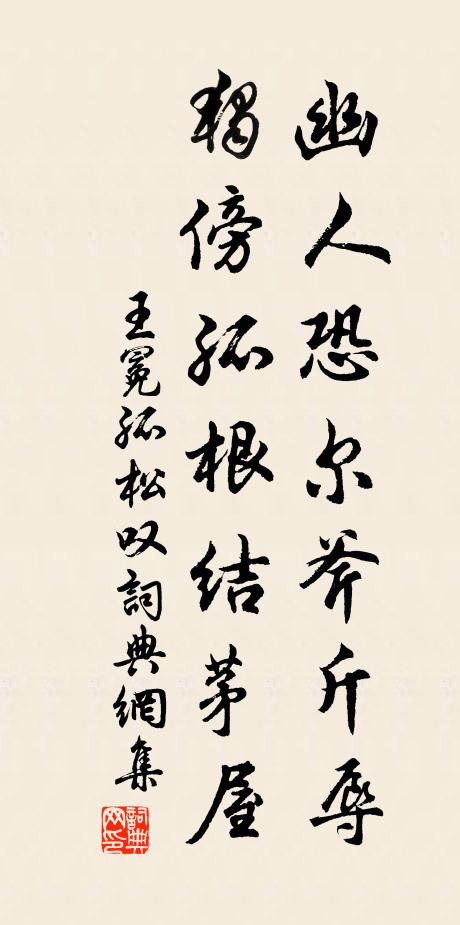 幽人恐尔斧斤辱
独傍孤根结茅屋
王冕孤松叹詞典網集
詞典網印